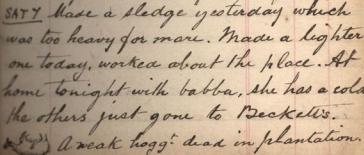 SATY Made a sledge yesterday which
was too heavy for mare. Made a lighter
one today, worked about the place. At
home tonight with babba, she has a cold
the others just gone to Becketts.
A weak hogg. dead in plantation.